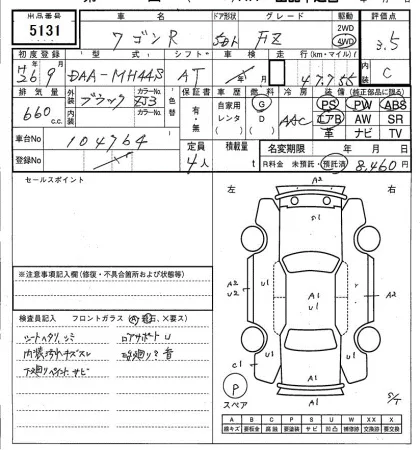 出品番号 車名 ドア形状 グレード 駆動 評価点
5131 ワゴンR 5D FZ 2WD 4WD 3.5
初度登録 型式 シフト 車検 走行(km・マイル) 内装
H26年9月 DAA-MH44S AT 年 月 C
排気量 外装 ブラック カラーNo. ZJ3 色替 保証書 車歴 燃料 冷房 装備(純正部品に限る)
660 c.c. 内装 カラーNo. 有・無 自家用 レンタ ( ) G D ( ) AAC PS PW ABS
エアB AW SR
革 ナビ TV
車台No 104764
定員 4人 積載量 t 名変期限 年 月 日
登録No
R料金 未預託・預託済 8,460円
セールスポイント
左 右
A2
U1
A1
A2
U2
U1
A1
U1
A2
C1
A1
P
スペア
S/T
※注意事項記入欄(修復・不具合箇所および状態等)
検査員記入 フロントガラス(A、飛石、×要ス)
シートヘタリ、シミ ロアサポートU
内装汚れキズスレ
下廻りペイント サビ
A B C P S U W XX X
線キズ 要板金 腐蝕 要塗装 サビ 凹凸 補修跡 交換跡 要交換